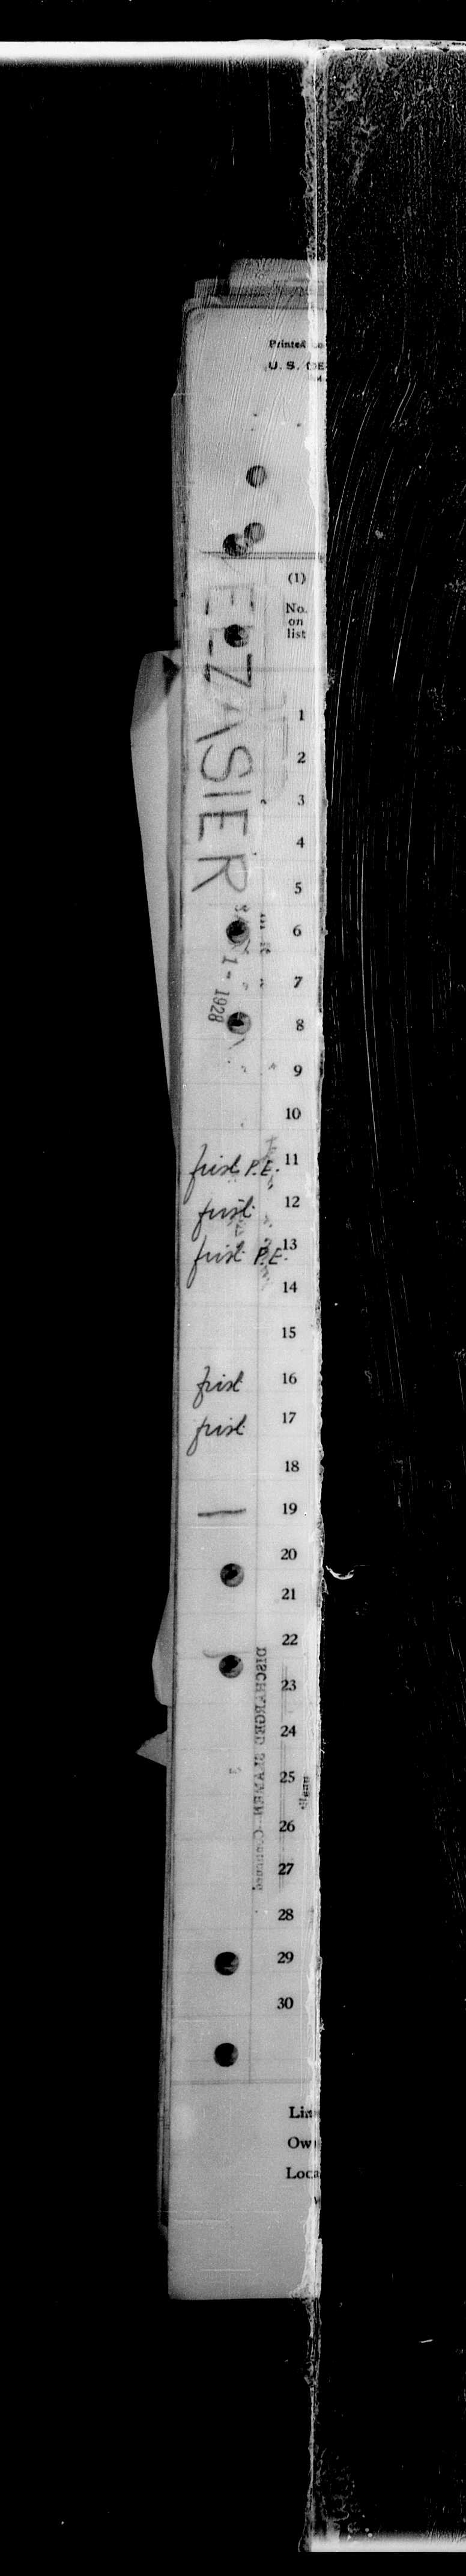 Printed
U. S. DE
(1)
No.
on
list
EZASIER
1 - 1928
1
2
3
4
5
6
7
8
9
10
first P.E. 11
first 12
first P.E. 13
14
15
first 16
first 17
18
19
20
21
22
23
24
25
26
27
28
29
30
DISCHARGED SEAMEN—Continued
Lin
Ow
Loca